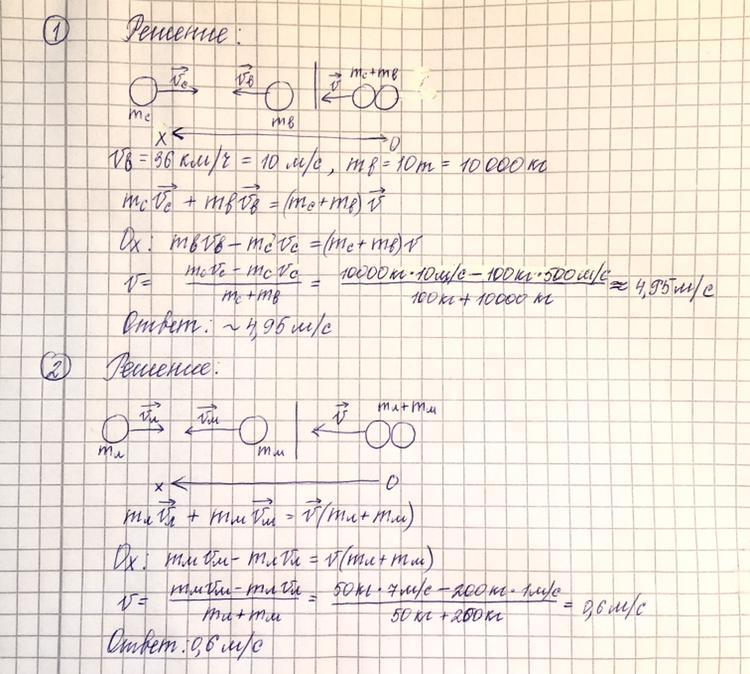 ① Решение:
v⃗с v⃗в v⃗ mс+mв
mс mв
x 0
vв = 36 км/ч = 10 м/с, mв = 10т = 10 000 кг
mсv⃗с + mвv⃗в = (mс+mв)v⃗
Ox: mвvв − mсvс = (mс+mв)v
v = (mсvс − mсvс)/(mс+mв) = (10000кг·10м/с − 100кг·500м/с)/(100кг+10000 кг) ≈ 4,95 м/с
Ответ: ~4,95 м/с
② Решение:
v⃗л v⃗м v⃗ mл+mм
mл mм
x 0
mлv⃗л + mмv⃗м = v⃗(mл+mм)
Ox: mмvм − mлvл = v(mл+mм)
v = (mмvм − mлvл)/(mл+mм) = (50кг·7м/с − 200кг·1м/с)/(50кг+200кг) = 0,6 м/с
Ответ: 0,6 м/с